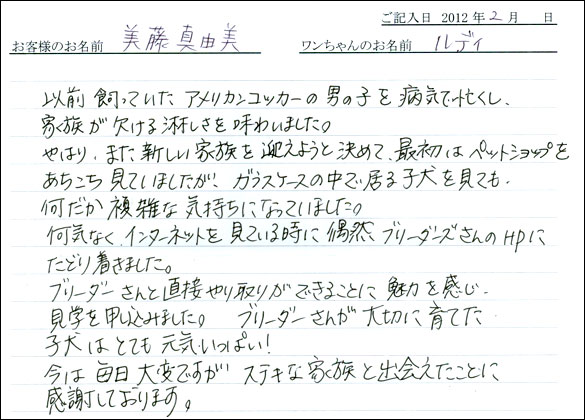 ご記入日 2012年2月 日
お客様のお名前 美藤真由美 ワンちゃんのお名前 ルディ
以前飼っていたアメリカンコッカーの男の子を病気で亡くし、
家族が欠ける淋しさを味わいました。
やはり、また新しい家族を迎えようと決めて、最初はペットショップを
あちこち見ていましたが、ガラスケースの中で居る子犬を見ても、
何だか複雑な気持ちになっていました。
何気なく、インターネットを見ている時に偶然、ブリーダーズさんのHPに
たどり着きました。
ブリーダーさんと直接やり取りができることに魅力を感じ、
見学を申し込みました。 ブリーダーさんが大切に育てた
子犬はとても元気いっぱい!
今は毎日大変ですがステキな家族と出会えたことに
感謝しております。